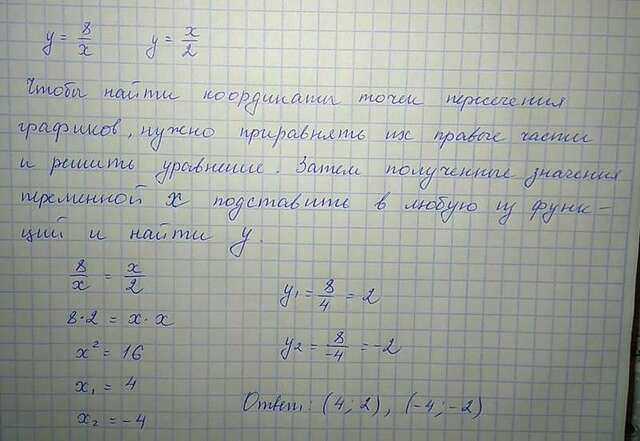 y = 8/x y = x/2
Чтобы найти координаты точек пересечения
графиков, нужно приравнять их правые части
и решить уравнение. Затем полученные значения
переменной x подставить в любую из функ-
ций и найти y.
8/x = x/2
8·2 = x·x
x² = 16
x₁ = 4
x₂ = -4
y₁ = 8/4 = 2
y₂ = 8/-4 = -2
Ответ: (4; 2), (-4; -2)